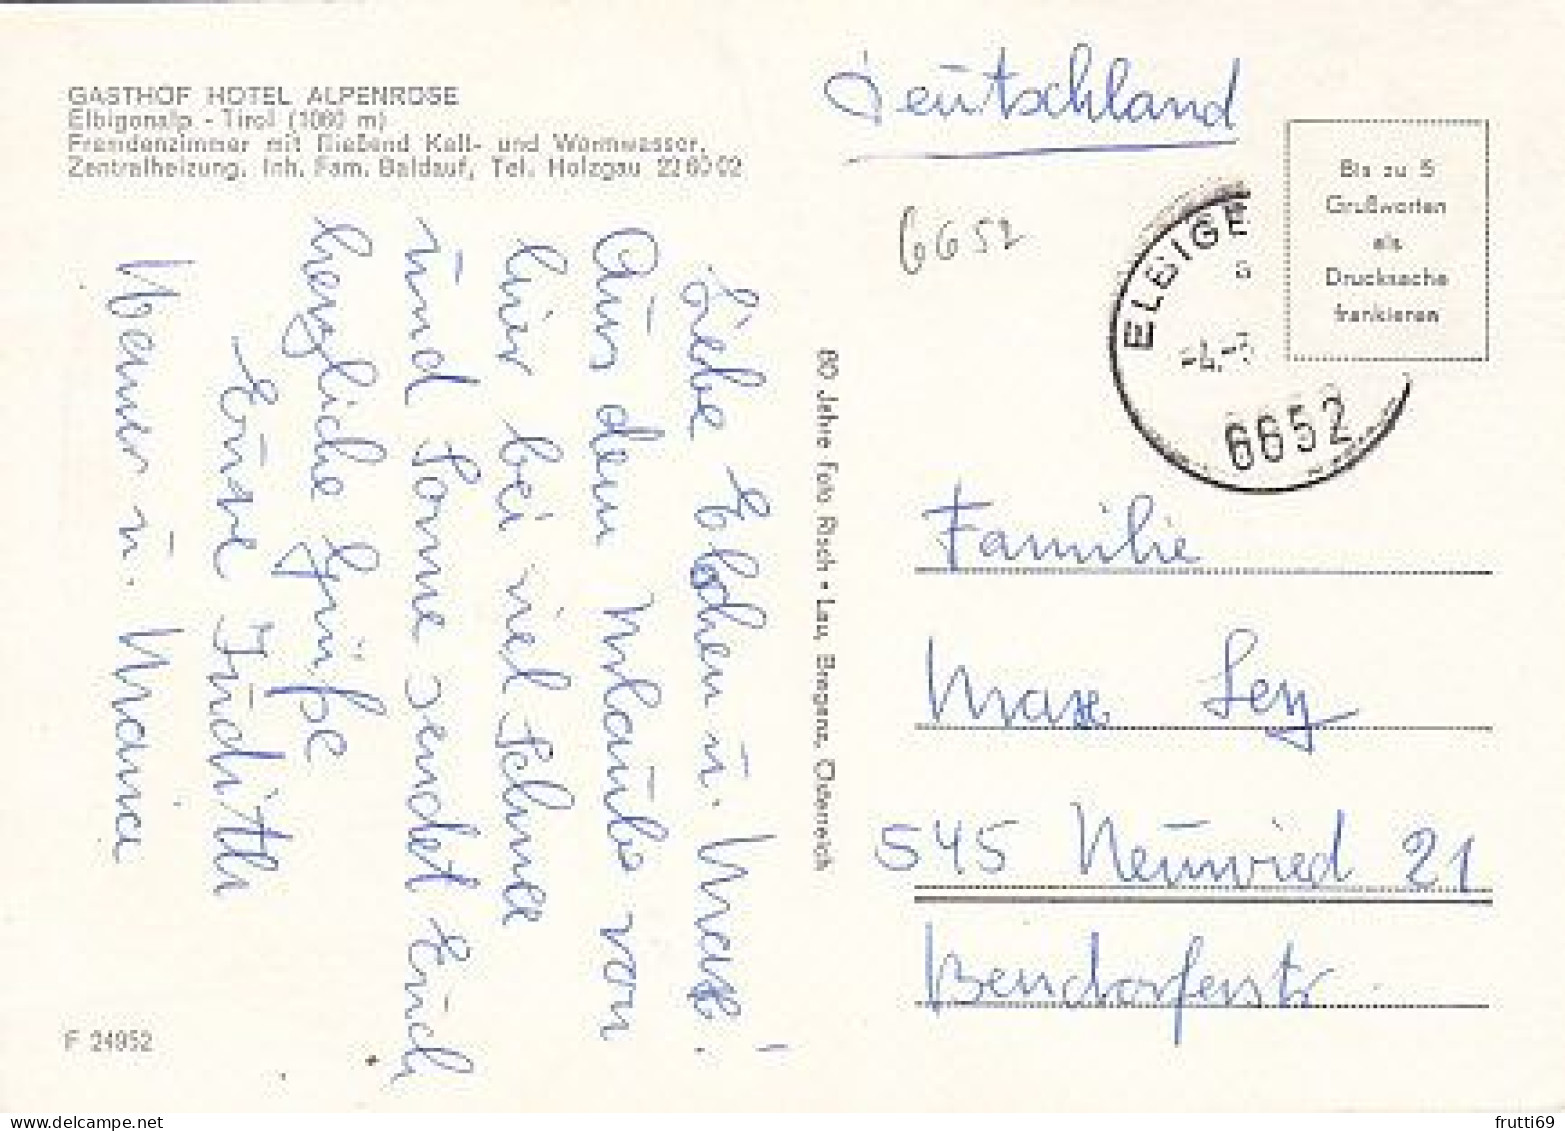 GASTHOF HOTEL ALPENROSE
Elbigenalp - Tirol (1060 m)
Fremdenzimmer mit fließend Kalt- und Warmwasser,
Zentralheizung, Inh. Fam. Baldauf, Tel. Holzgau 22 60 02
Liebe u. Max!
Aus dem Urlaub von
hier bei viel Schnee
und Sonne sendet Euch
herzliche Grüße
Eure Judith
Werner u. Mama
F 24952
80 Jahre Foto Risch • Lau, Bregenz, Österreich
Deutschland
6652
ELBIGE
6652
Bis zu 5
Grußworten
als
Drucksache
frankieren
Familie
Max
545 Neuwied 21
Bendorferstr.
frutti69